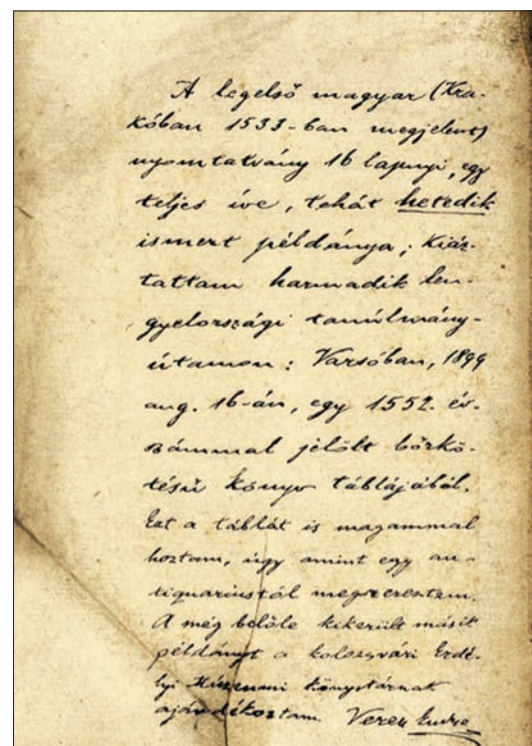 A legelső magyar (Kra-
kóban 1533-ban megjelent)
nyomtatvány 16 lapnyi, egy
teljes íve, tehát hetedik
ismert példánya; kiáz-
tattam harmadik len-
gyelországi tanúlmány-
útamon: Varsóban, 1899
aug. 16-án, egy 1552. év-
számmal jelölt bőrkö-
tésű könyv táblájából.
Ezt a táblát is magammal
hoztam, úgy amint egy an-
tiquariustól megszereztem.
A még belőle kikerült másik
példányt a kolozsvári Erdé-
lyi Múzeumi könyvtárnak
ajándékoztam. Veress Endre